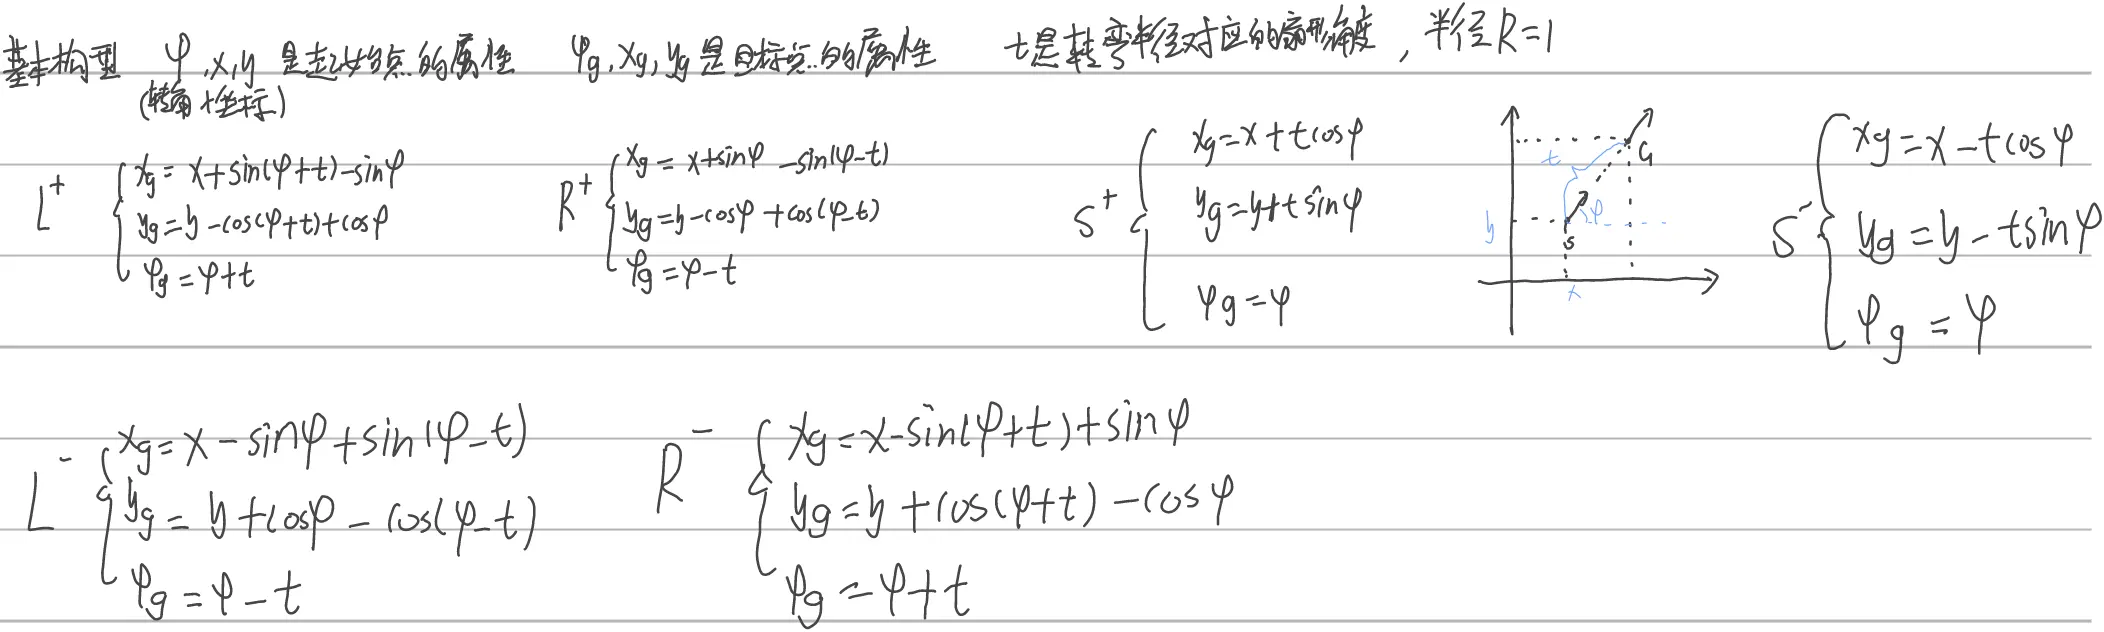 基本构型 φ,x,y 是起始点的属性 φg,xg,yg是目标点的属性 t是转弯半径对应的扇形角度,半径R=1
(转角+坐标)
L⁺ { xg=x+sin(φ+t)-sinφ
yg=y-cos(φ+t)+cosφ
φg=φ+t
R⁺ { xg=x+sinφ-sin(φ-t)
yg=y-cosφ+cos(φ-t)
φg=φ-t
S⁺ { xg=x+tcosφ
yg=y+tsinφ
φg=φ
t
G
φ
y
S
x
S⁻ { xg=x-tcosφ
yg=y-tsinφ
φg=φ
L⁻ { xg=x-sinφ+sin(φ-t)
yg=y+cosφ-cos(φ-t)
φg=φ-t
R⁻ { xg=x-sin(φ+t)+sinφ
yg=y+cos(φ+t)-cosφ
φg=φ+t